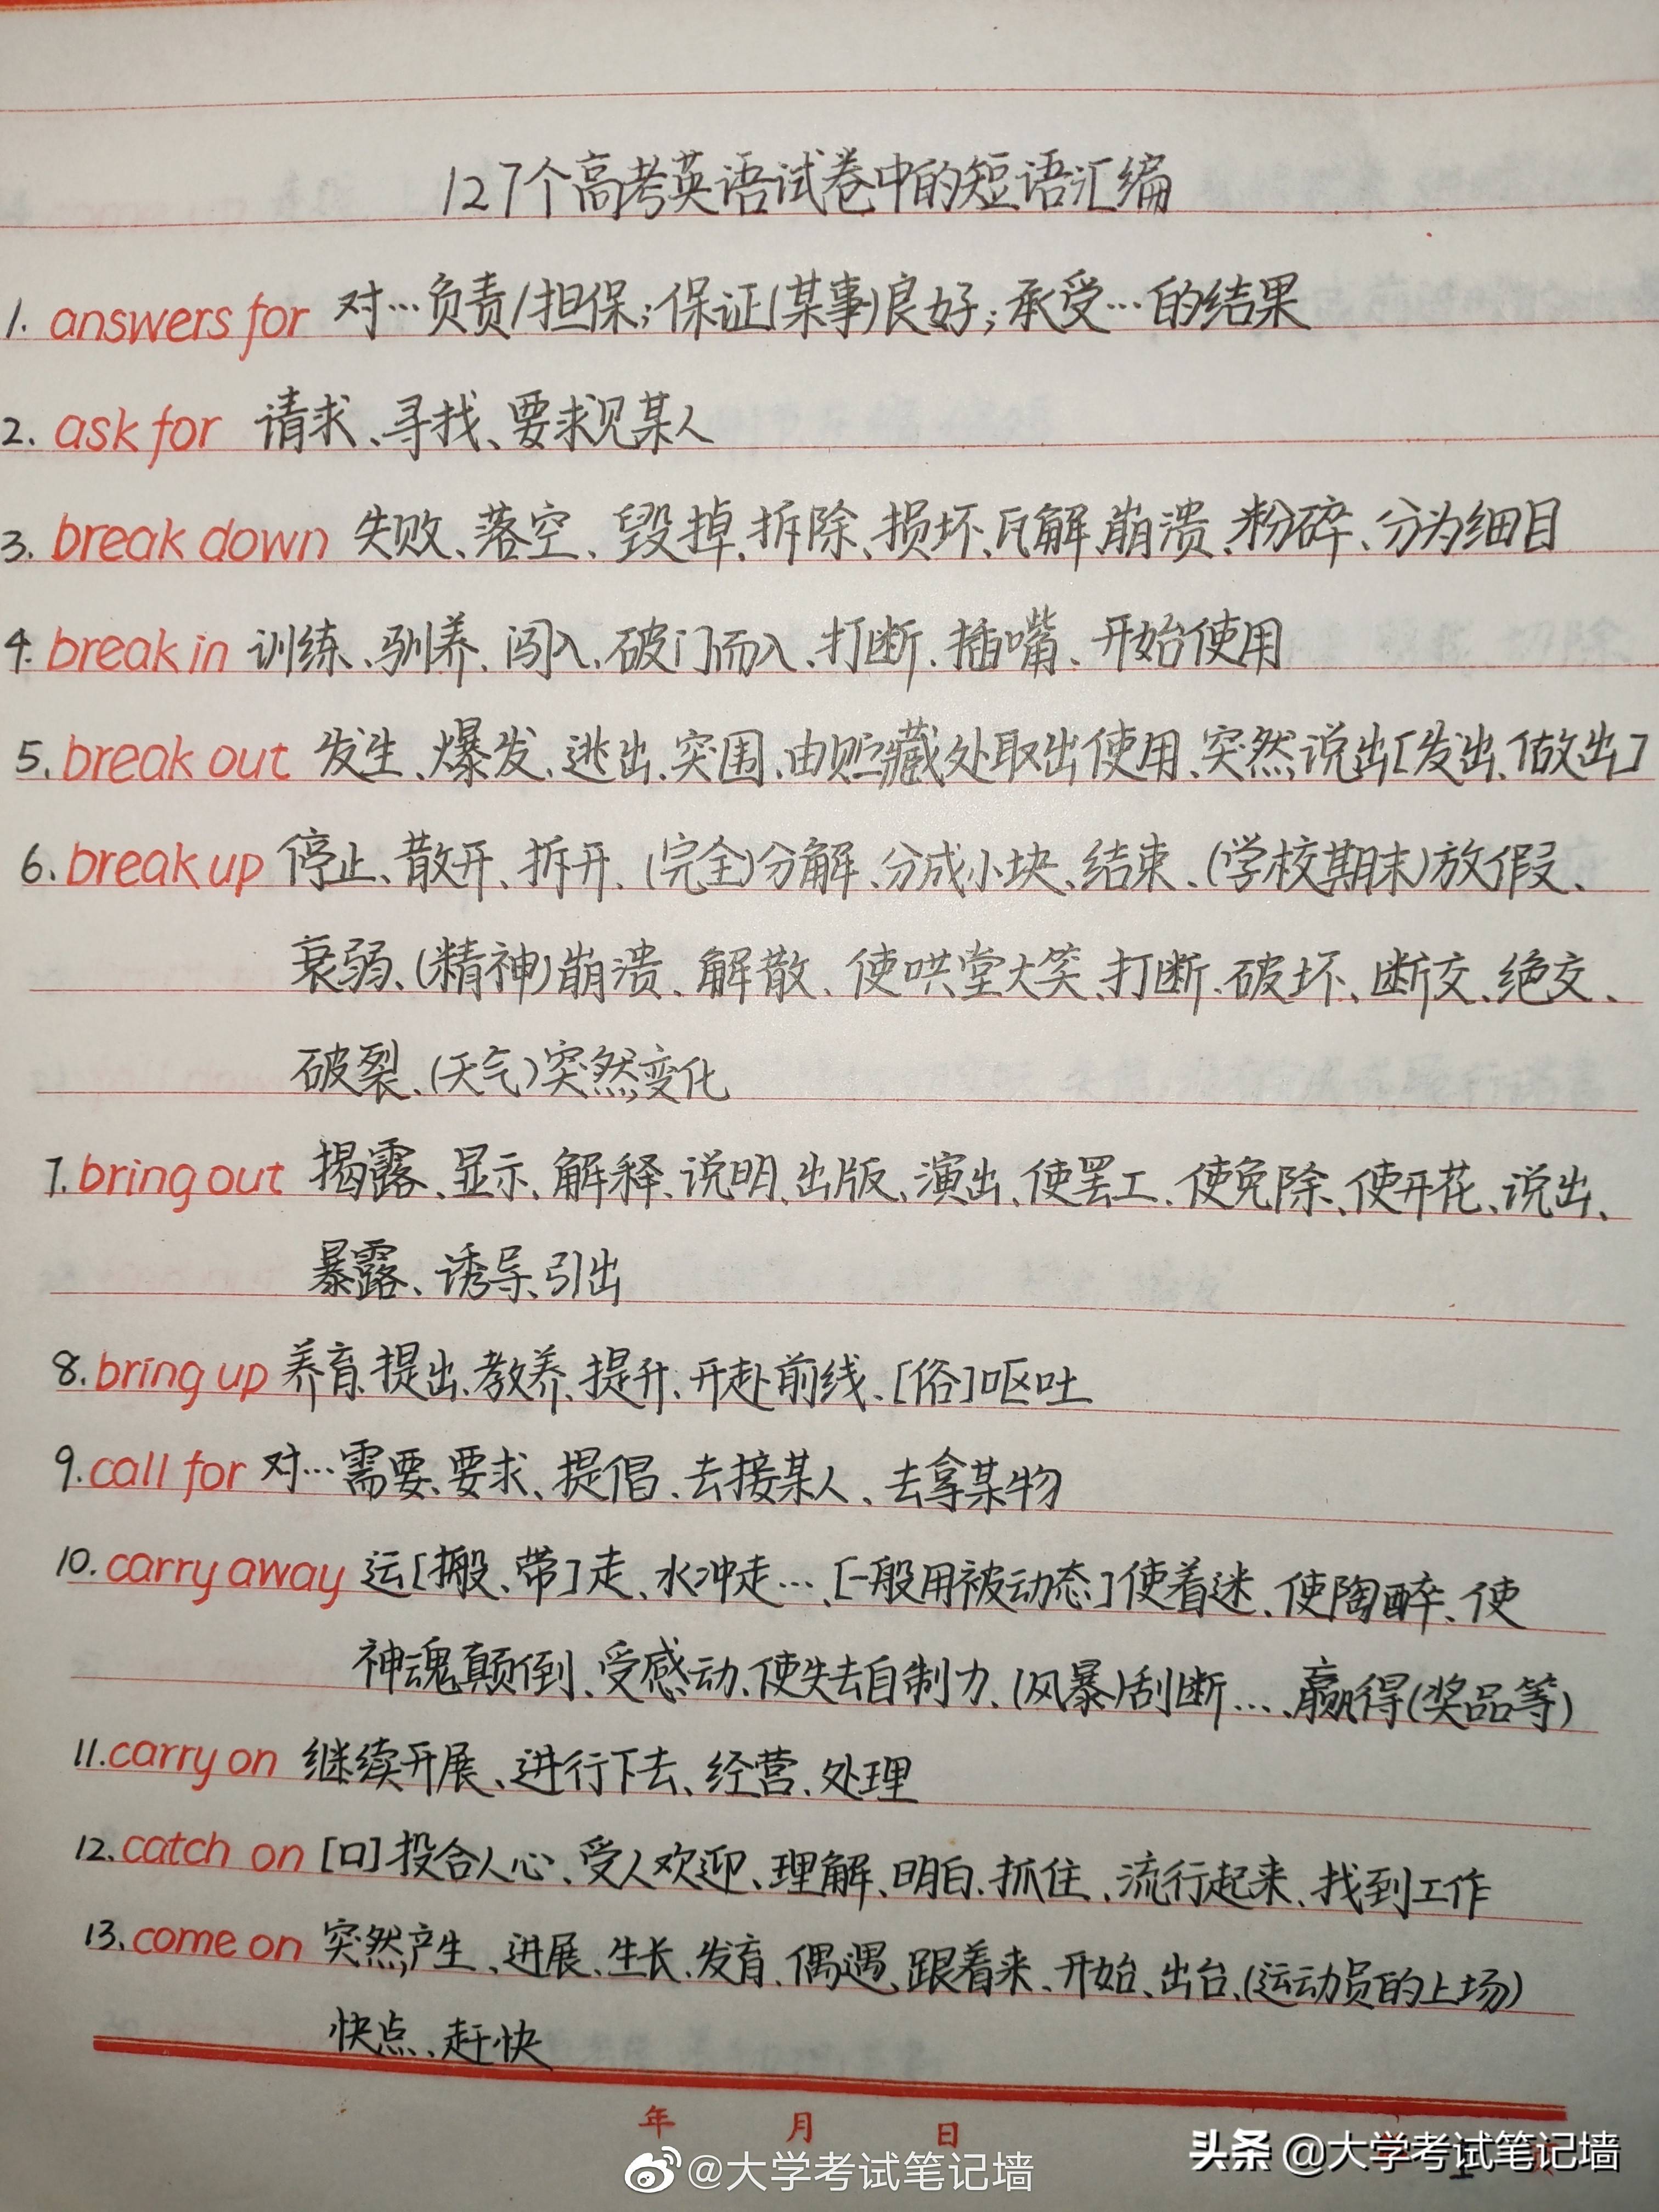 127个高考英语试卷中的短语汇编
1. answers for 对…负责/担保;保证(某事)良好;承受…的结果
2. ask for 请求、寻找、要求见某人
3. break down 失败、落空、毁掉、拆除、损坏、瓦解、崩溃、粉碎、分为细目
4. break in 训练、驯养、闯入、破门而入、打断、插嘴、开始使用
5. break out 发生、爆发、逃出、突围、由贮藏处取出使用、突然说出[发出、做出]
6. break up 停止、散开、拆开、(完全)分解、分成小块、结束、(学校期末)放假、
衰弱、(精神)崩溃、解散、使哄堂大笑、打断、破坏、断交、绝交、
破裂、(天气)突然变化
7. bring out 揭露、显示、解释、说明、出版、演出、使罢工、使免除、使开花、说出、
暴露、诱导、引出
8. bring up 养育、提出、教养、提升、开赴前线、[俗]呕吐
9. call for 对…需要、要求、提倡、去接某人、去拿某物
10. carry away 运[搬、带]走、水冲走…、[一般用被动态]使着迷、使陶醉、使
神魂颠倒、受感动、使失去自制力、(风暴)刮断…、赢得(奖品等)
11. carry on 继续开展、进行下去、经营、处理
12. catch on [口]投合人心、受人欢迎、理解、明白、抓住、流行起来、找到工作
13. come on 突然产生、进展、生长、发育、偶遇、跟着来、开始、出台、(运动员的上场)
快点、赶快
年 月 日
@大学考试笔记墙
头条 @大学考试笔记墙